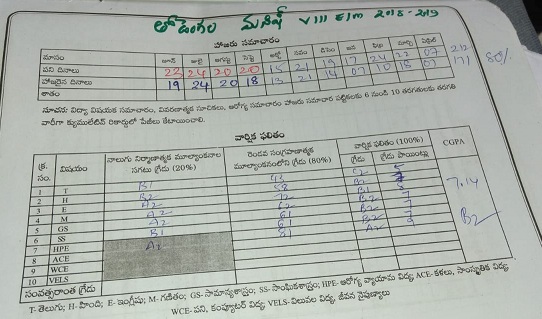 తోడెంగం మనీష్ VIII E/m 2018-2019
హాజరు సమాచారం
మాసం జూన్ జులై ఆగస్టు సెప్టె అక్టో నవం డిసెం జన ఫిబ్ర మార్చి ఏప్రిల్
పని దినాలు 23 24 20 20 15 21 19 17 24 22 07 212
హాజరైన దినాలు 19 24 20 18 13 21 14 07 10 18 07 171 80%
శాతం
సూచన: విద్యా విషయక సమాచారం, వివరణాత్మక సూచికలు, ఆరోగ్య సమాచారం హాజరు సమాచార పట్టికలకు 6 నుండి 10 తరగతులకు తరగతి
వారీగా క్యుములేటివ్ రికార్డులో పేజీలు కేటాయించాలి.
వార్షిక ఫలితం
క్ర. సం. విషయం నాలుగు నిర్మాణాత్మక మూల్యాంకనాల సగటు గ్రేడు (20%) రెండవ సంగ్రహణాత్మక మూల్యాంకనంలోని గ్రేడు (80%) వార్షిక ఫలితం (100%) గ్రేడు గ్రేడు పాయింట్లు CGPA
1 T B1
2 H B2 58 B2
3 E A2 72 B1
4 M A2 B2 7 7.14
5 GS A2 61 B2 7
6 SS B1 61 B2 7 B2
7 HPE A2 81 A2 9
8 ACE
9 WCE
10 VELS
సంవత్సరాంత గ్రేడు
T- తెలుగు; H-హిందీ; E- ఇంగ్లీషు; M- గణితం; GS- సామాన్యశాస్త్రం; SS- సాంఘికశాస్త్రం; HPE- ఆరోగ్య వ్యాయామ విద్య; ACE-కళలు, సాంస్కృతిక విద్య;
WCE-పని, కంప్యూటర్ విద్య; VELS-విలువల విద్య, జీవన నైపుణ్యాలు